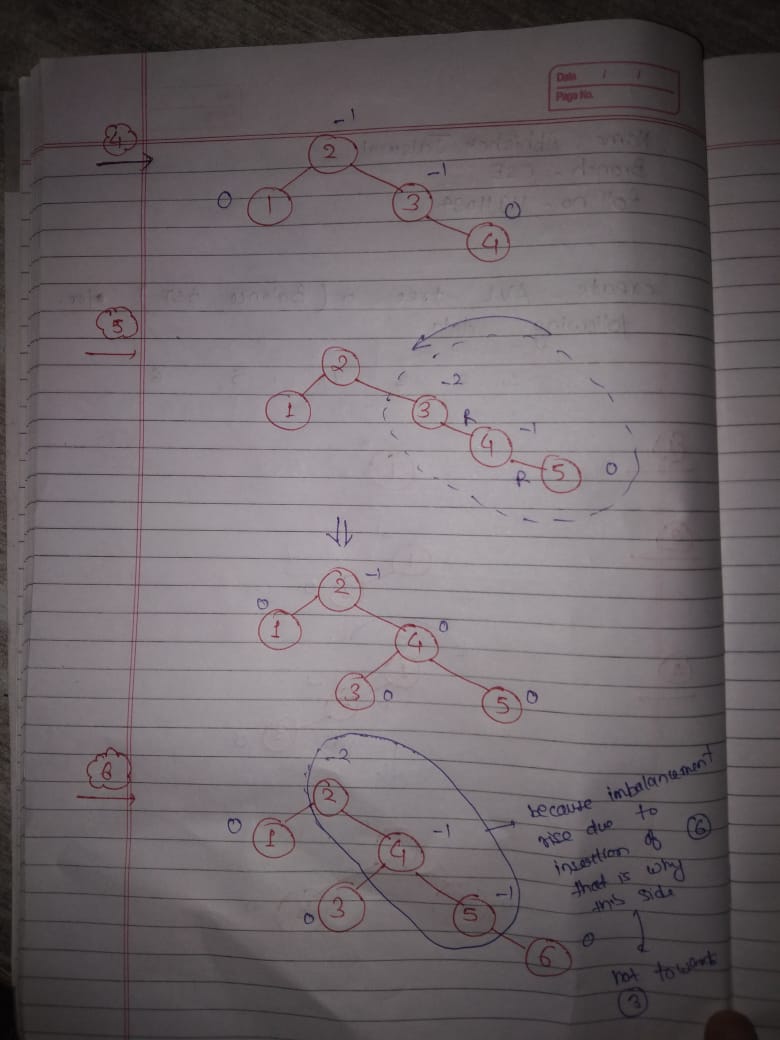 Date / /
Page No.
4
-1
2
-1
0 1 3 0
4
5
2
-2
1 3 R
4 -1
R 5 0
⇓
2 -1
0
1 4 0
3 0 5 0
6
-2
2
0 1 4 -1
0 3 5 -1
6 0
because imbalancement
rise due to
insertion of 6
that is why
this side
not towards
3